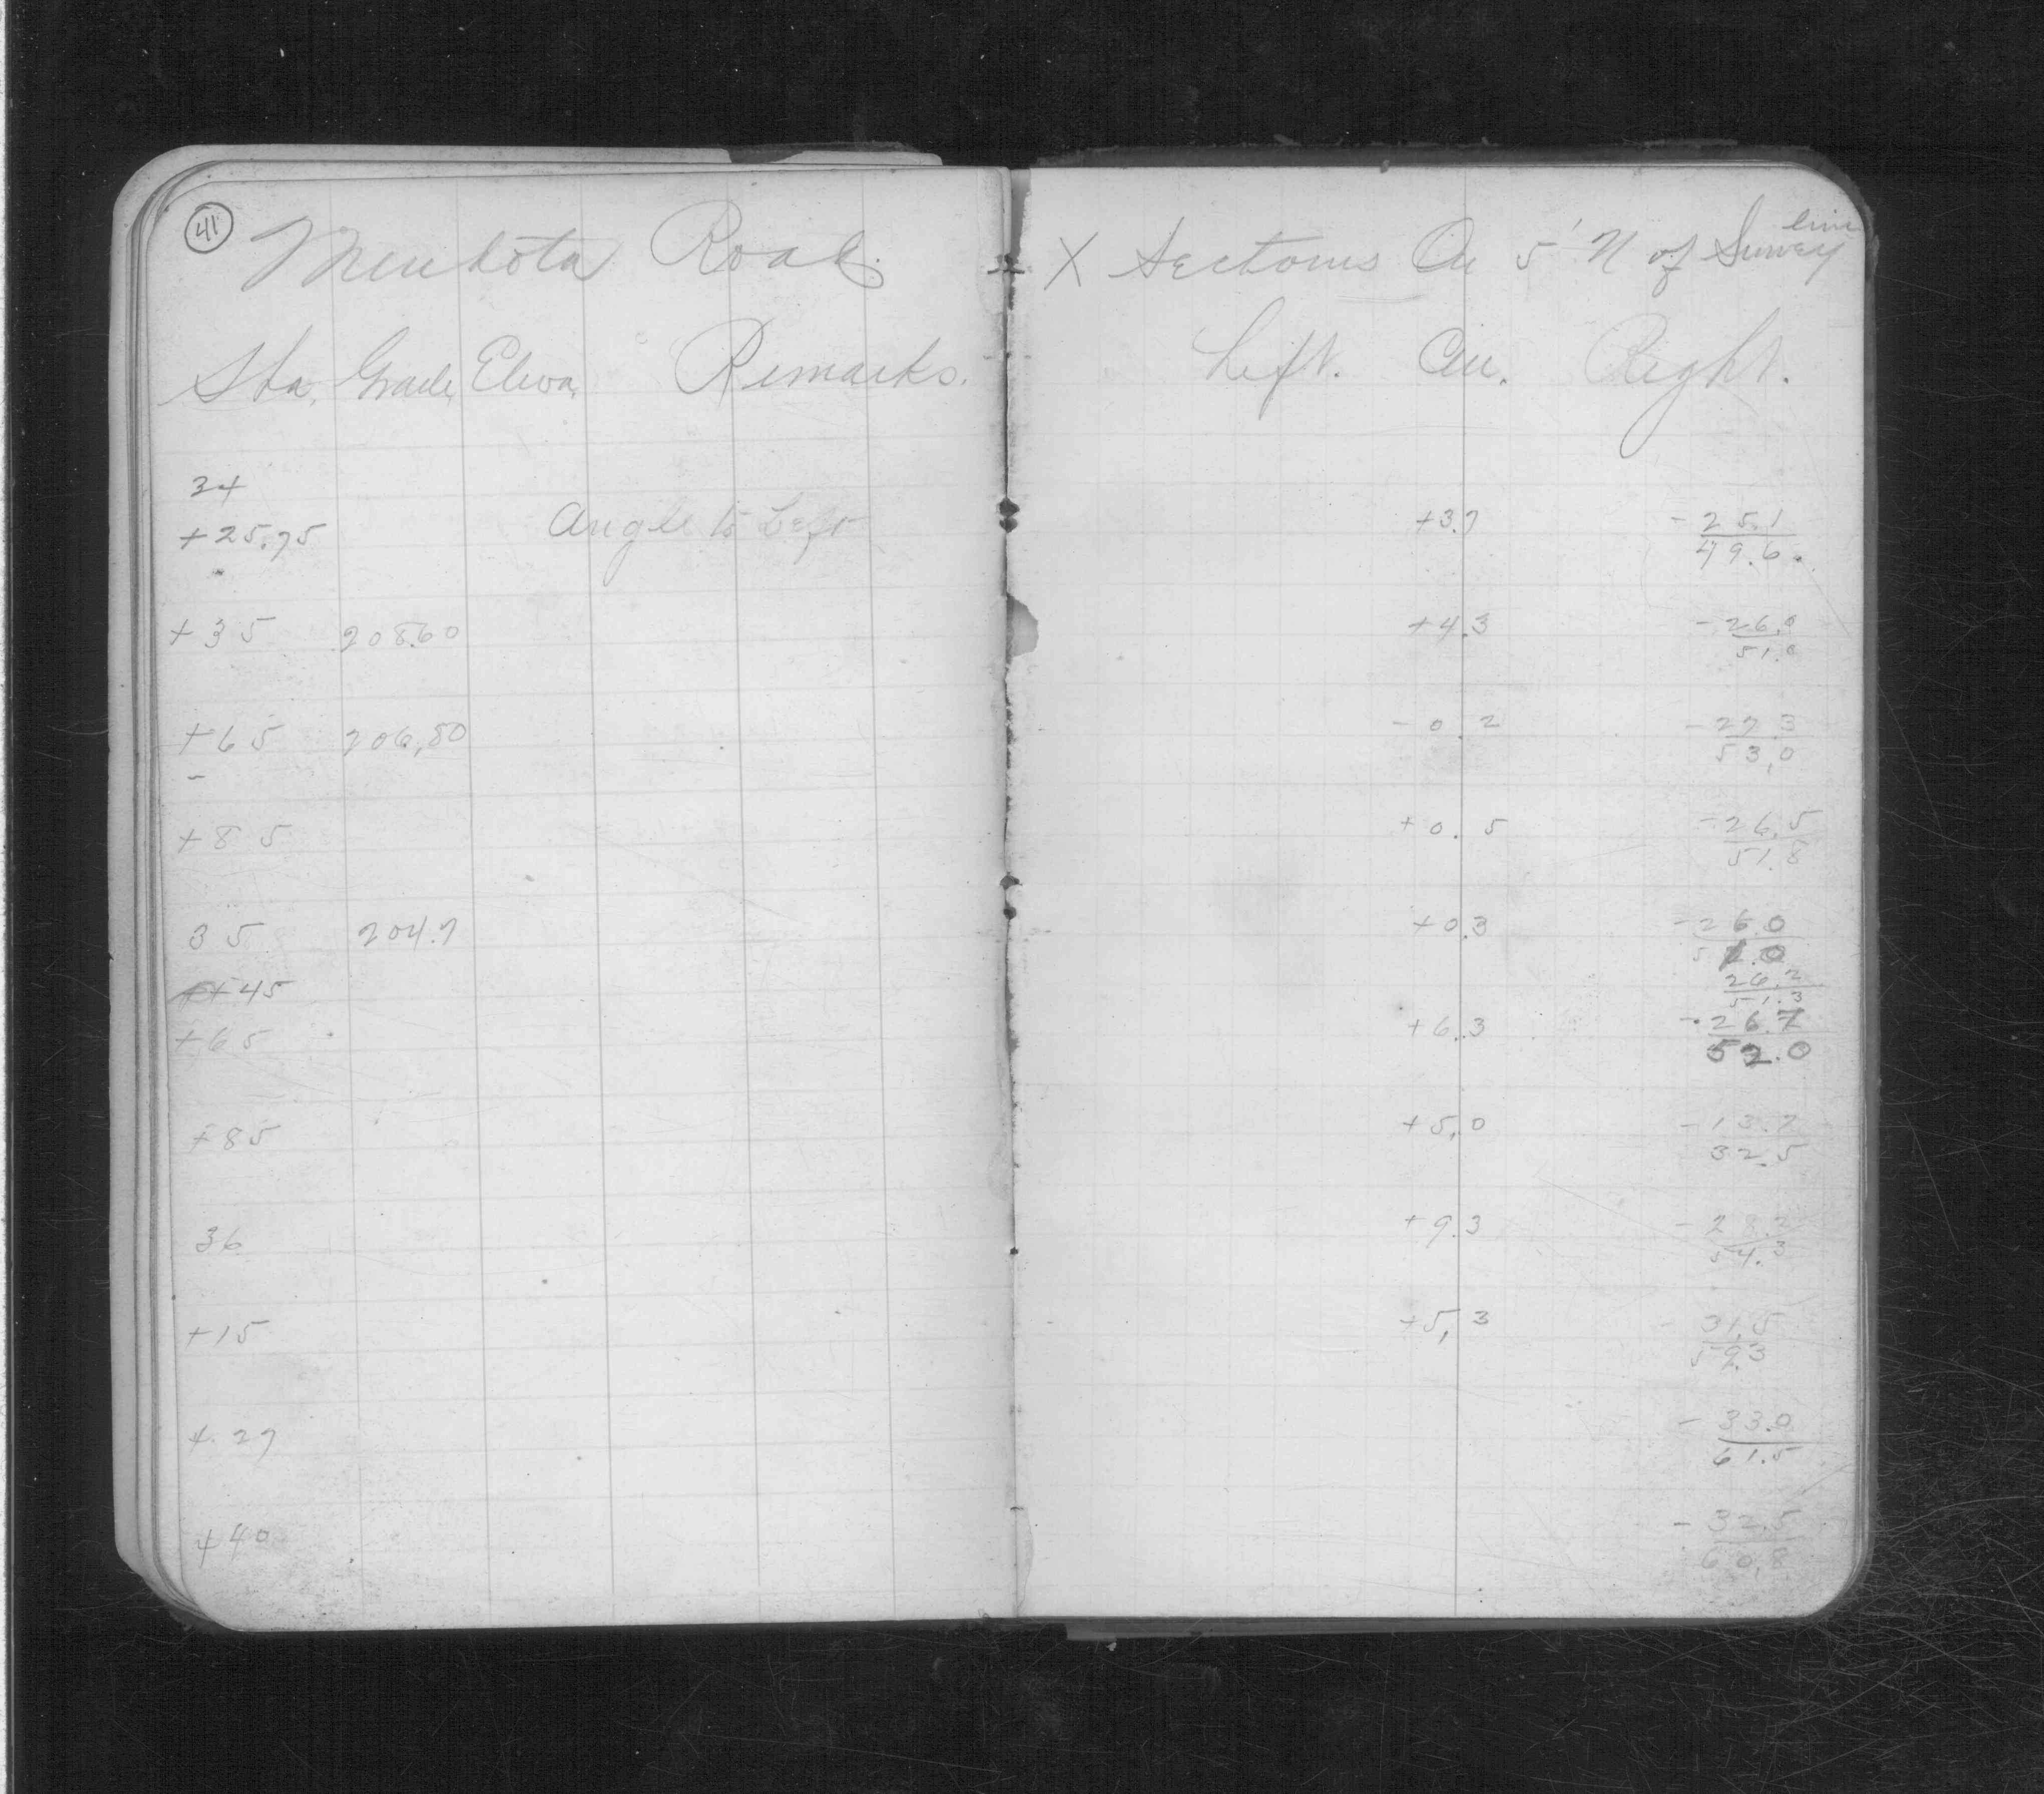 41
Mendota Road.
Sta. Grade Eleva. Remarks.
34
+25.75 Angle to Left
+35 208.60
+65 206.80
+85
35 204.7
+45
+65
+85
36
+15
+27
+40
X Sections Cen 5' N of Survey line
Left. Cen. Right.
+3.7 -25.1
49.6
+4.3 -26.0
51.0
-0.2 -27.3
53.0
+0.5 -26.5
51.8
+0.3 -26.0
51.0
26.2
51.3
+6.3 -26.7
52.0
+5.0 -13.7
32.5
+9.3 -28.2
54.3
+5.3 -31.5
59.3
-33.0
61.5
-32.5
60.8